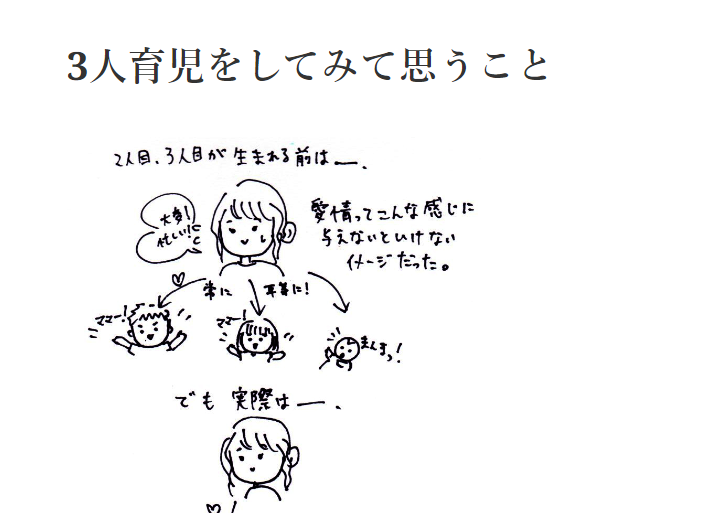 3人育児をしてみて思うこと
2人目、3人目が生まれる前は―、
大変!
忙しい!
愛情ってこんな感じに
与えないといけない
イメージだった。
常に 平等に!
ママー!
ママー!
まんまっ!
でも実際は―、